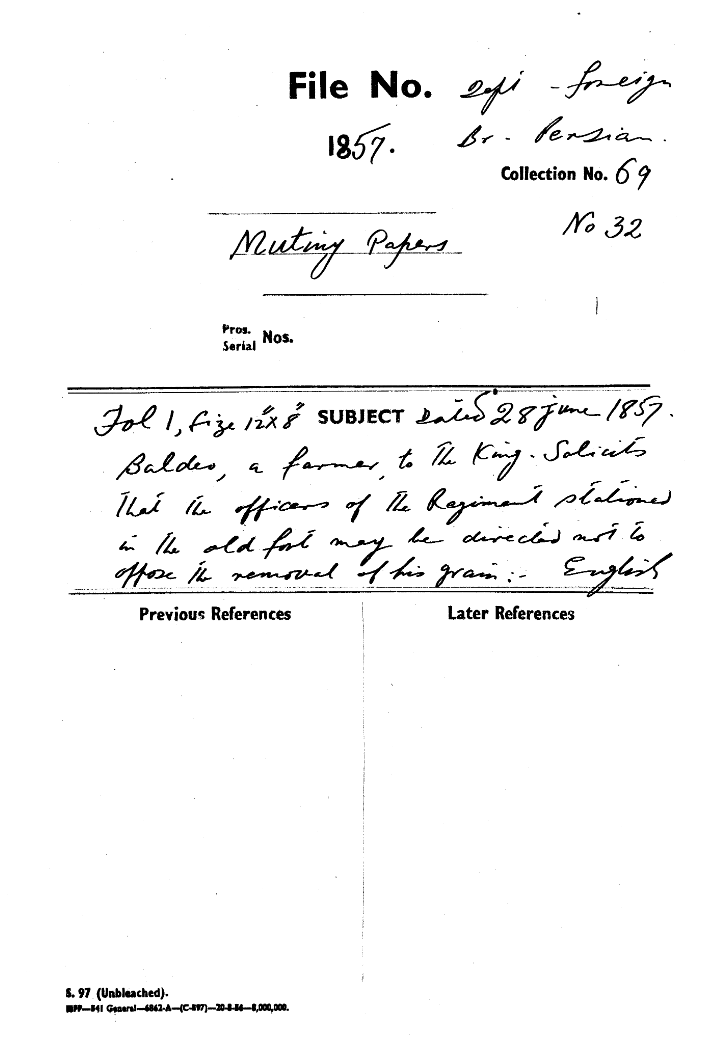 File No. Dept - Foreign
1857. Br - Persian.
Collection No. 69
No 32
Mutiny Papers
Pros.
Serial Nos.
Fol 1, Size 12"x8" SUBJECT Dated 28 June 1857.
Baldeo, a farmer, to the King. Solicits
that the officers of the Regiment stationed
in the old fort may be directed not to
oppose the removal of his grain:- English
Previous References
Later References
S. 97 (Unbleached).
General—6862-A—(C-897)—20-8-56—8,000,000.